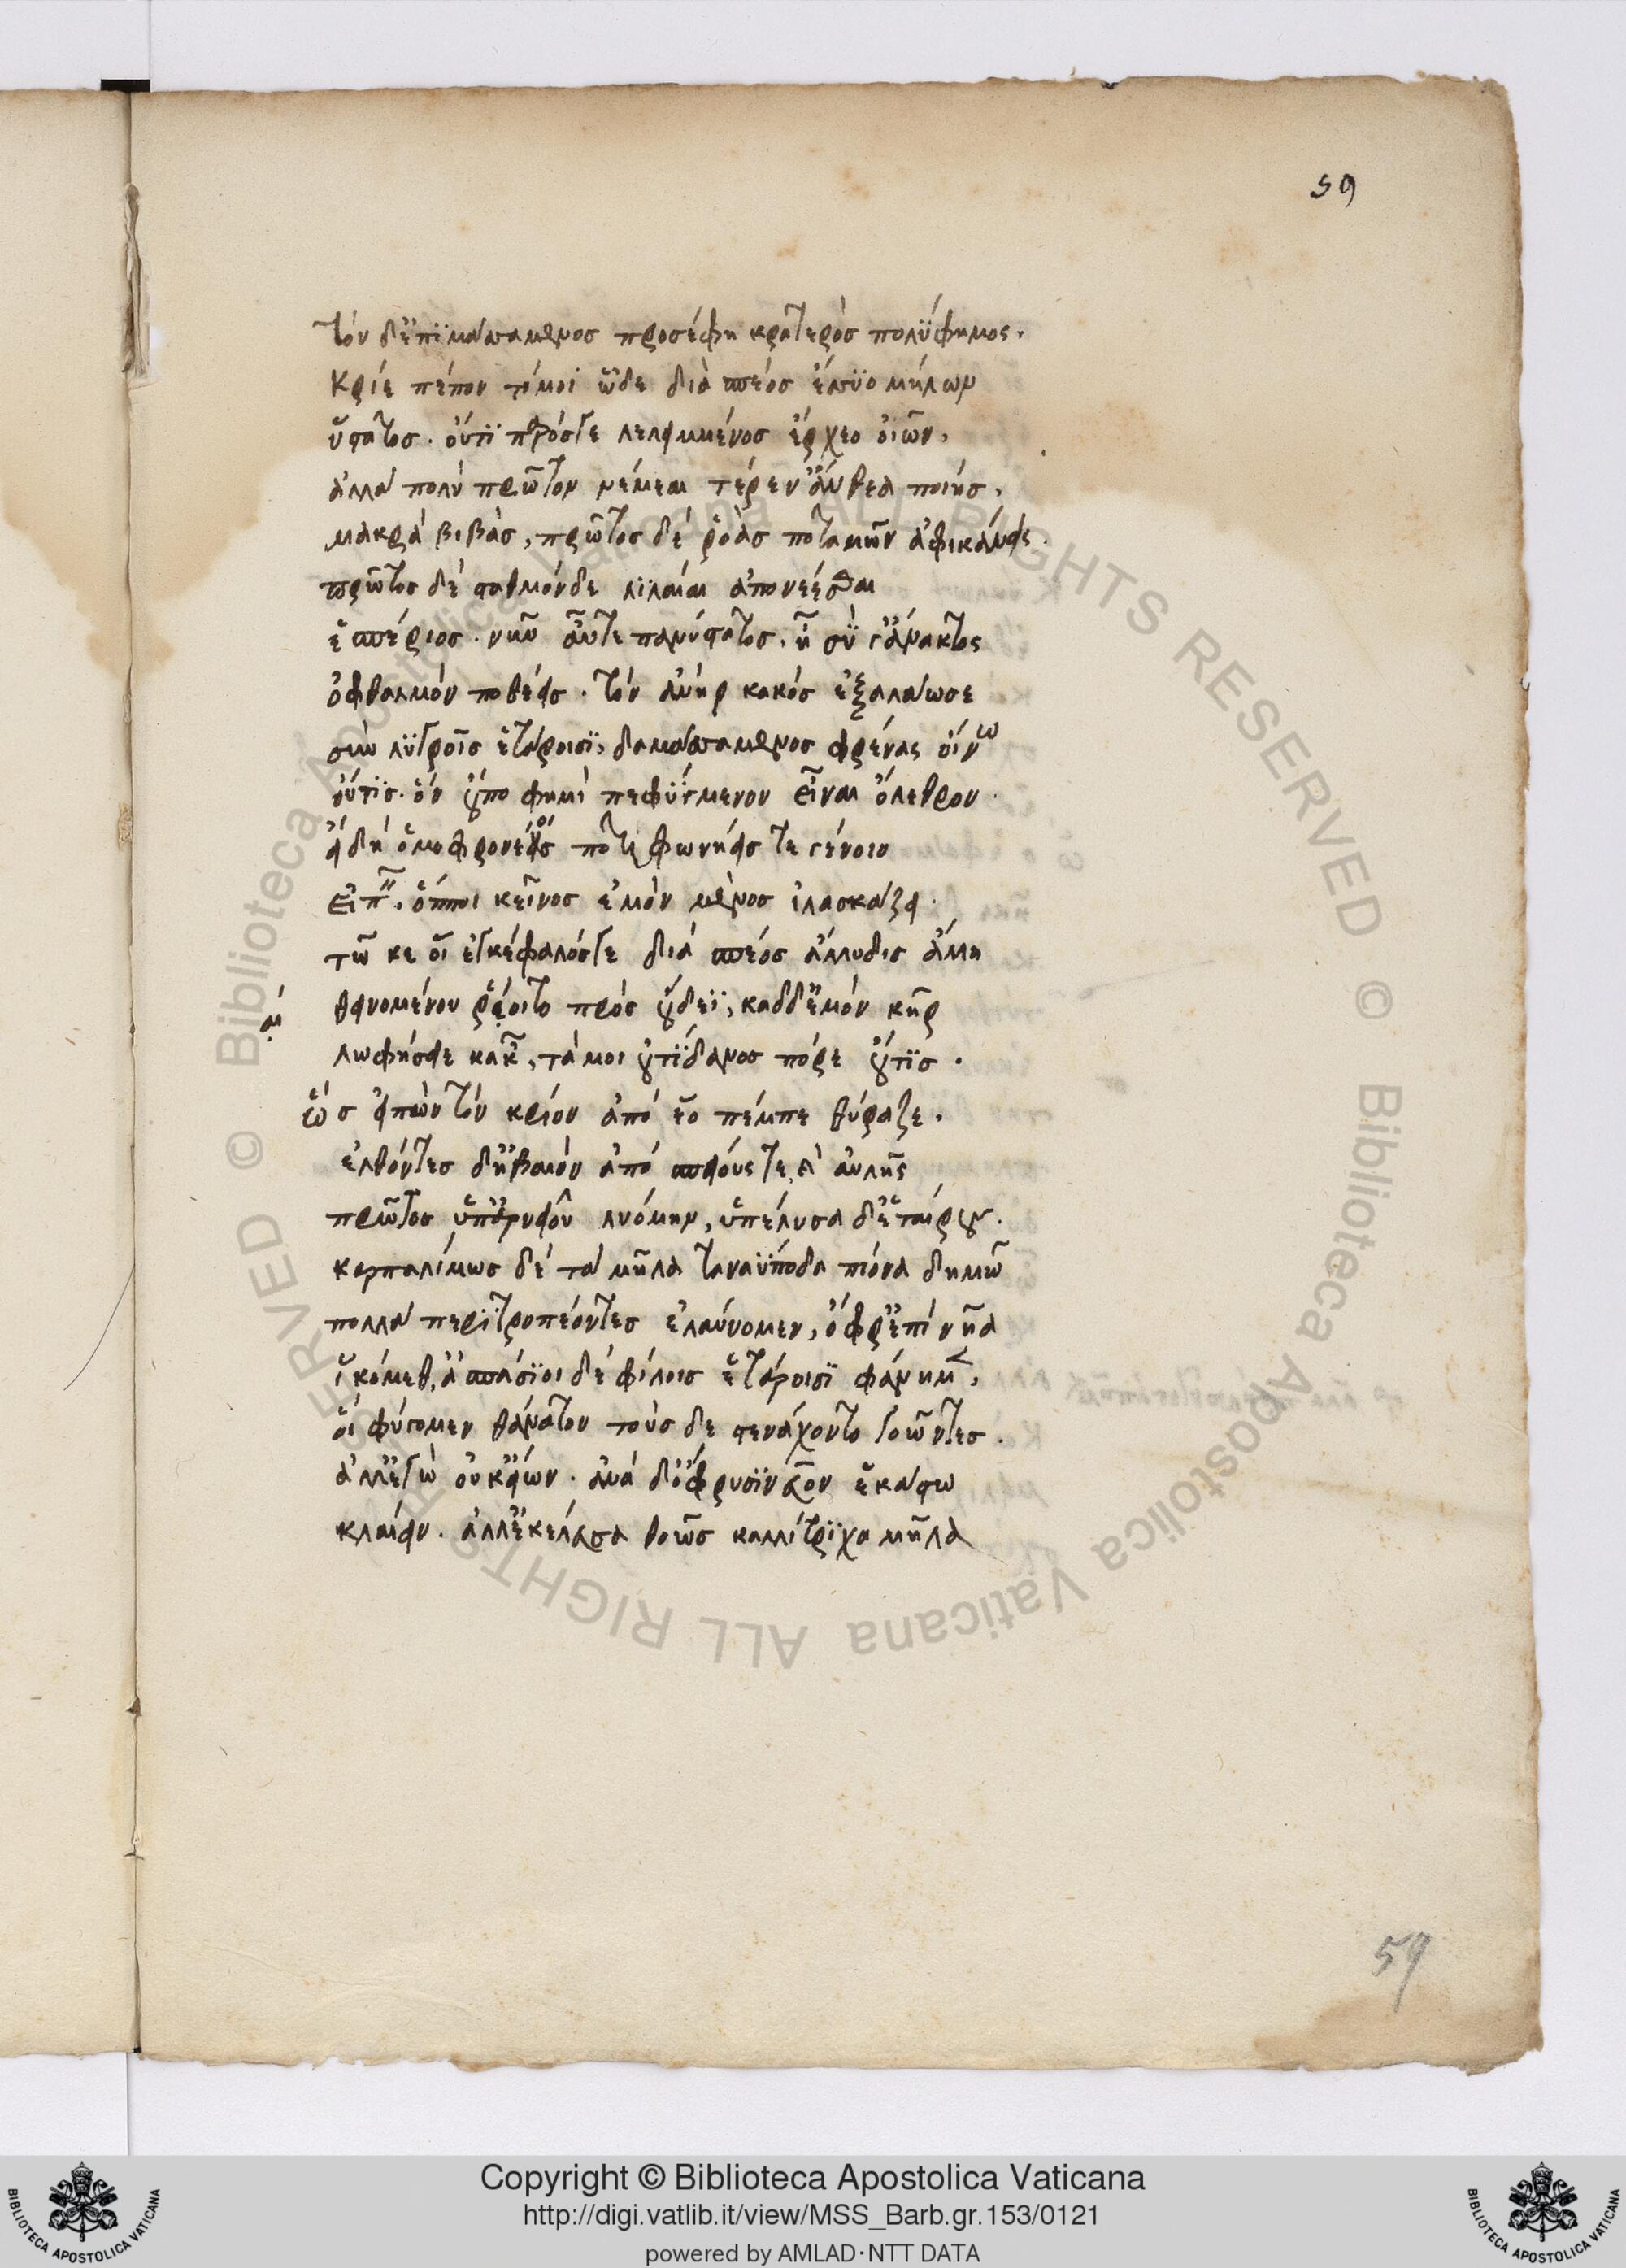 59
τὸν δ' ἐπϊμασσάμενος προσέφη κρατερὸς πολύφημος.
Κριὲ πέπον τί μοι ὧδε διὰ σπέος ἔσσϋο μήλων
ὕστατος. οὔτϊ πρόσγε λελειμμένος ἔρχεο οἰῶν,
ἀλλὰ πολὺ πρῶτον νέμεαι τέρεν' ἄνθεα ποίης,
μακρὰ βιβὰς, πρῶτος δὲ ῥοὰς ποταμῶν ἀφικάνεις.
πρῶτος δὲ σταθμόνδε λϊλαίεαι ἀπονέεσθαι
ἑσπέριος. νῦν αὖτε πανύστατος. ἦ σϋ γ' ἄνακτος
ὀφθαλμὸν ποθέεις. τὸν ἀνὴρ κακὸς ἐξαλάωσε
σὺν λϋγροῖς ἑτάροισϊ, δαμασσάμενος φρένας οἴνω
οὔτϊς. ὃν οὔπο φημὶ πεφϋγμένον εἶναι ὄλεθρον.
εἰ δὴ ὁμοφρονέοις ποτι φωνήεις τε γένοιο
εἰπεῖν. ὅππη κεῖνος ἐμὸν μένος ἠλασκάζει.
τῶ κέ οἱ ἐγκέφαλός γε διὰ σπέος ἄλλυδις ἄλλη
θεινομένου ῥέοιτο πρὸς οὔδεϊ, καδδ' ἐμὸν κῆρ
αί
λωφήσειε κακῶν, τά μοι οὐτϊδανος πόρε οὔτϊς.
ὣς εἰπὼν τὸν κριὸν ἀπὸ ἕο πέμπε θύραζε.
ἐλθόντες δ' ἠβαιὸν ἀπὸ σπείους τε καὶ αὐλῆς
πρῶτος ὑπ' ἀρνειοῦ λυόμην, ὑπέλυσα δ' ἑταίρους.
καρπαλίμως δὲ τὰ μῆλα ταναϋποδα πίονα δημῶ
πολλὰ περϊτροπέοντες ἐλαύνομεν, ὄφρ' ἐπὶ νῆα
ἱκόμεθ, ἀσπάσϊοι δὲ φίλοις ἑτάροισϊ φάνημεν,
οἳ φύγομεν θάνατον τοὺς δε στενάχοντο γοῶντες.
ἀλλ' ἐγὼ οὐκ εἴων. ἀνὰ δ' ὀφρυσϊ νεῦον ἑκάστω
κλαίειν. ἀλλ' ἐκέλευσα θοῶς καλλίτρϊχα μῆλα
59
© Biblioteca Apostolica Vaticana ALL RIGHTS RESERVED © Biblioteca Apostolica Vaticana ALL RIGHTS RESERVED
Copyright © Biblioteca Apostolica Vaticana
http://digi.vatlib.it/view/MSS_Barb.gr.153/0121
powered by AMLAD·NTT DATA
BIBLIOTECA APOSTOLICA VATICANA
BIBLIOTECA APOSTOLICA VATICANA